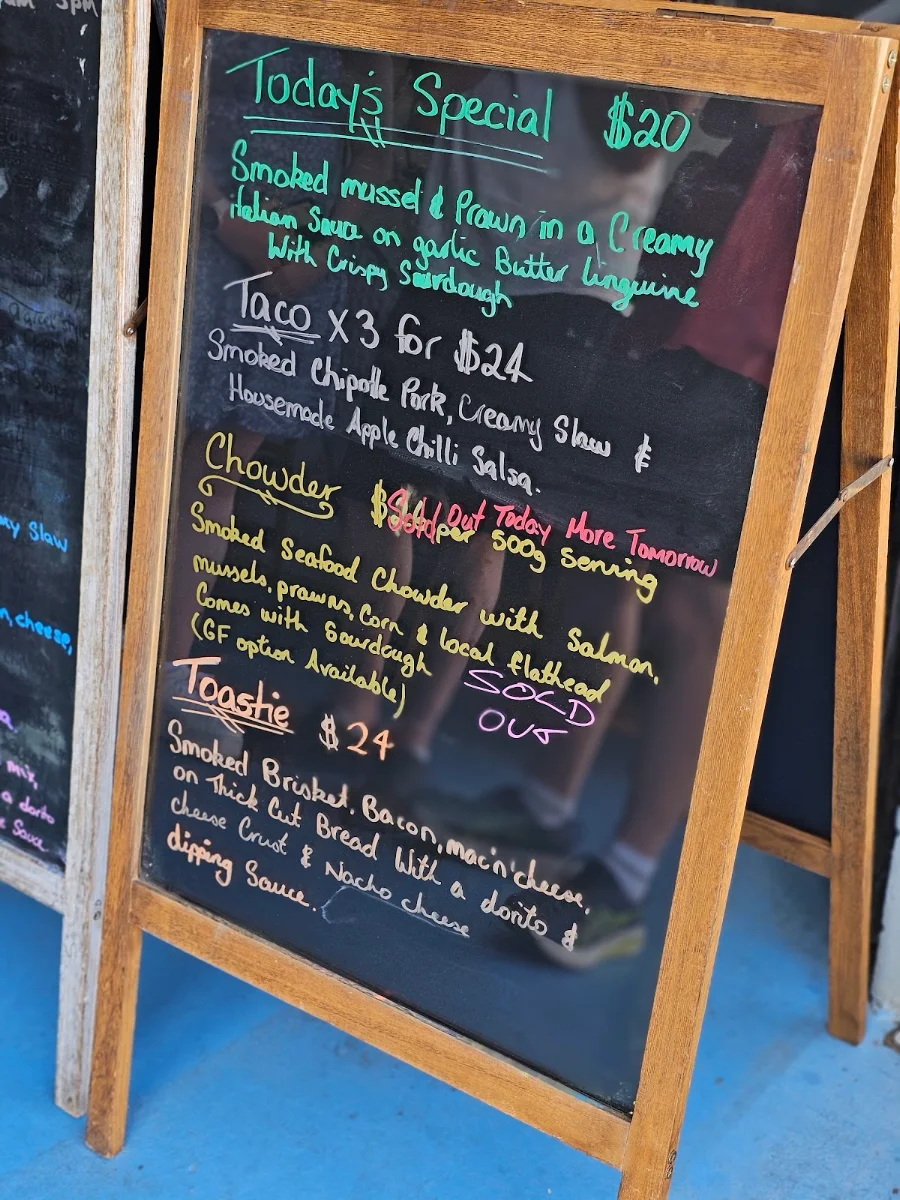 5pm
Today's Special $20
Smoked mussel & Prawn in a Creamy
italian Sauce on garlic Butter linguine
With Crispy Sourdough
Taco X3 for $24
Smoked Chipotle Pork, Creamy Slaw &
Housemade Apple Chilli Salsa.
Chowder
Sold Out Today More Tomorrow
per 500g Serving
Smoked Seafood Chowder with Salmon,
mussels, prawns, Corn & local flathead
Comes with Sourdough
(GF option Available)
SOLD
OUT
Toastie $24
Smoked Brisket, Bacon, mac'n'cheese,
on Thick Cut Bread With a dorito &
cheese Crust & Nacho cheese
dipping Sauce.
Slaw
cheese,
mix,
a dorito
Sauce